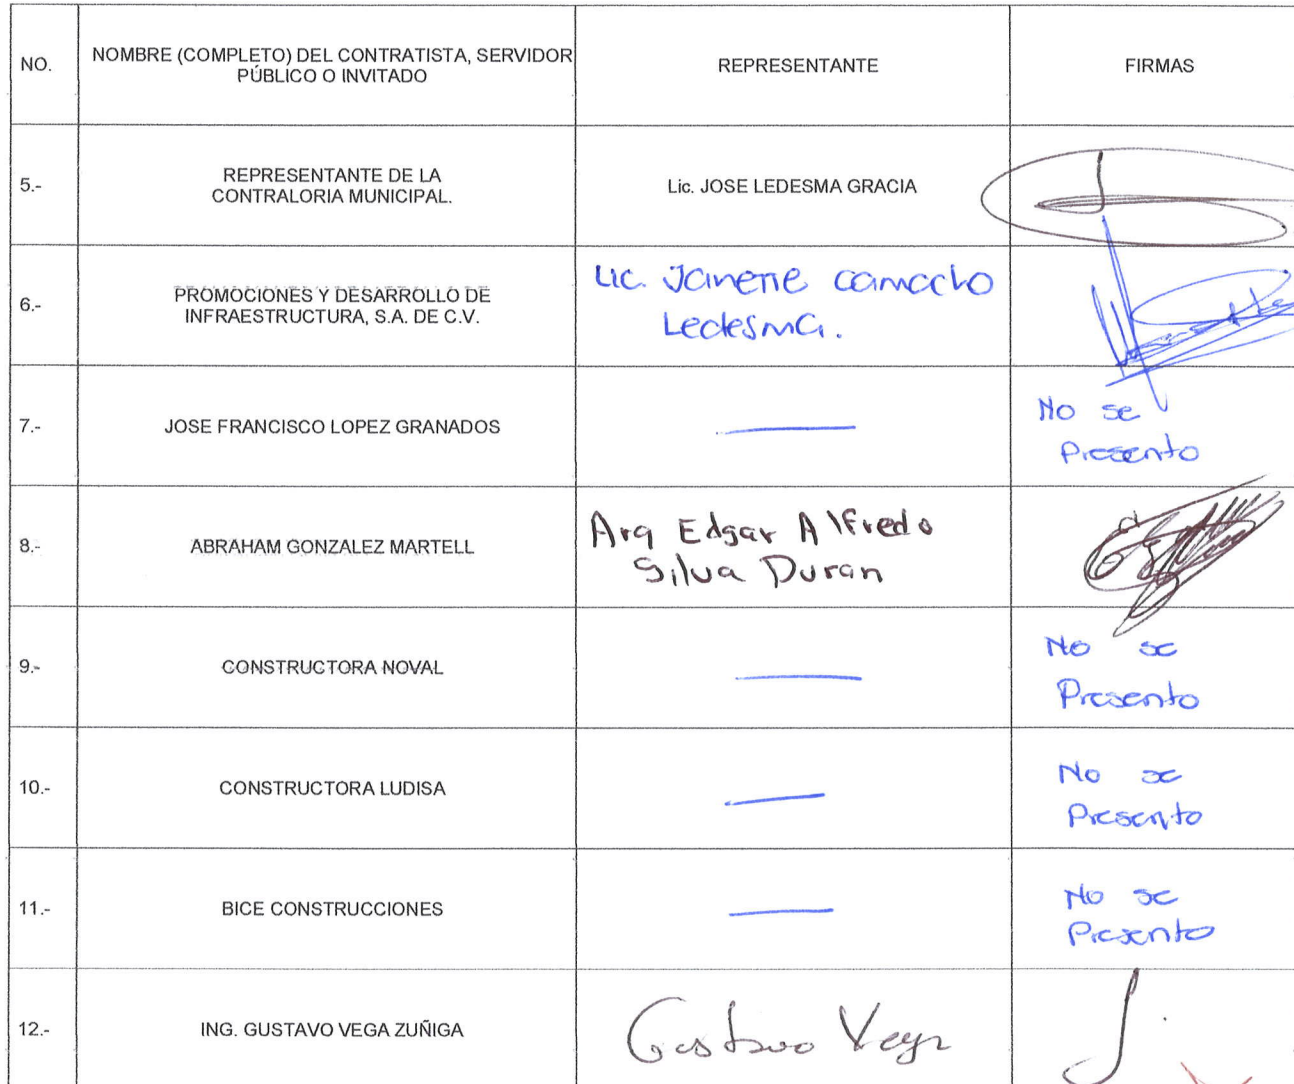 NO.
NOMBRE (COMPLETO) DEL CONTRATISTA, SERVIDOR
PÚBLICO O INVITADO
REPRESENTANTE
FIRMAS
5.-
REPRESENTANTE DE LA
CONTRALORIA MUNICIPAL.
Lic. JOSE LEDESMA GRACIA
6.-
PROMOCIONES Y DESARROLLO DE
INFRAESTRUCTURA, S.A. DE C.V.
Lic. Janette Camacho
Ledesma.
7.-
JOSE FRANCISCO LOPEZ GRANADOS
No se
Presento
8.-
ABRAHAM GONZALEZ MARTELL
Arq Edgar Alfredo
Silva Duran
9.-
CONSTRUCTORA NOVAL
No se
Presento
10.-
CONSTRUCTORA LUDISA
No se
Presento
11.-
BICE CONSTRUCCIONES
No se
Presento
12.-
ING. GUSTAVO VEGA ZUÑIGA
Gustavo Vega